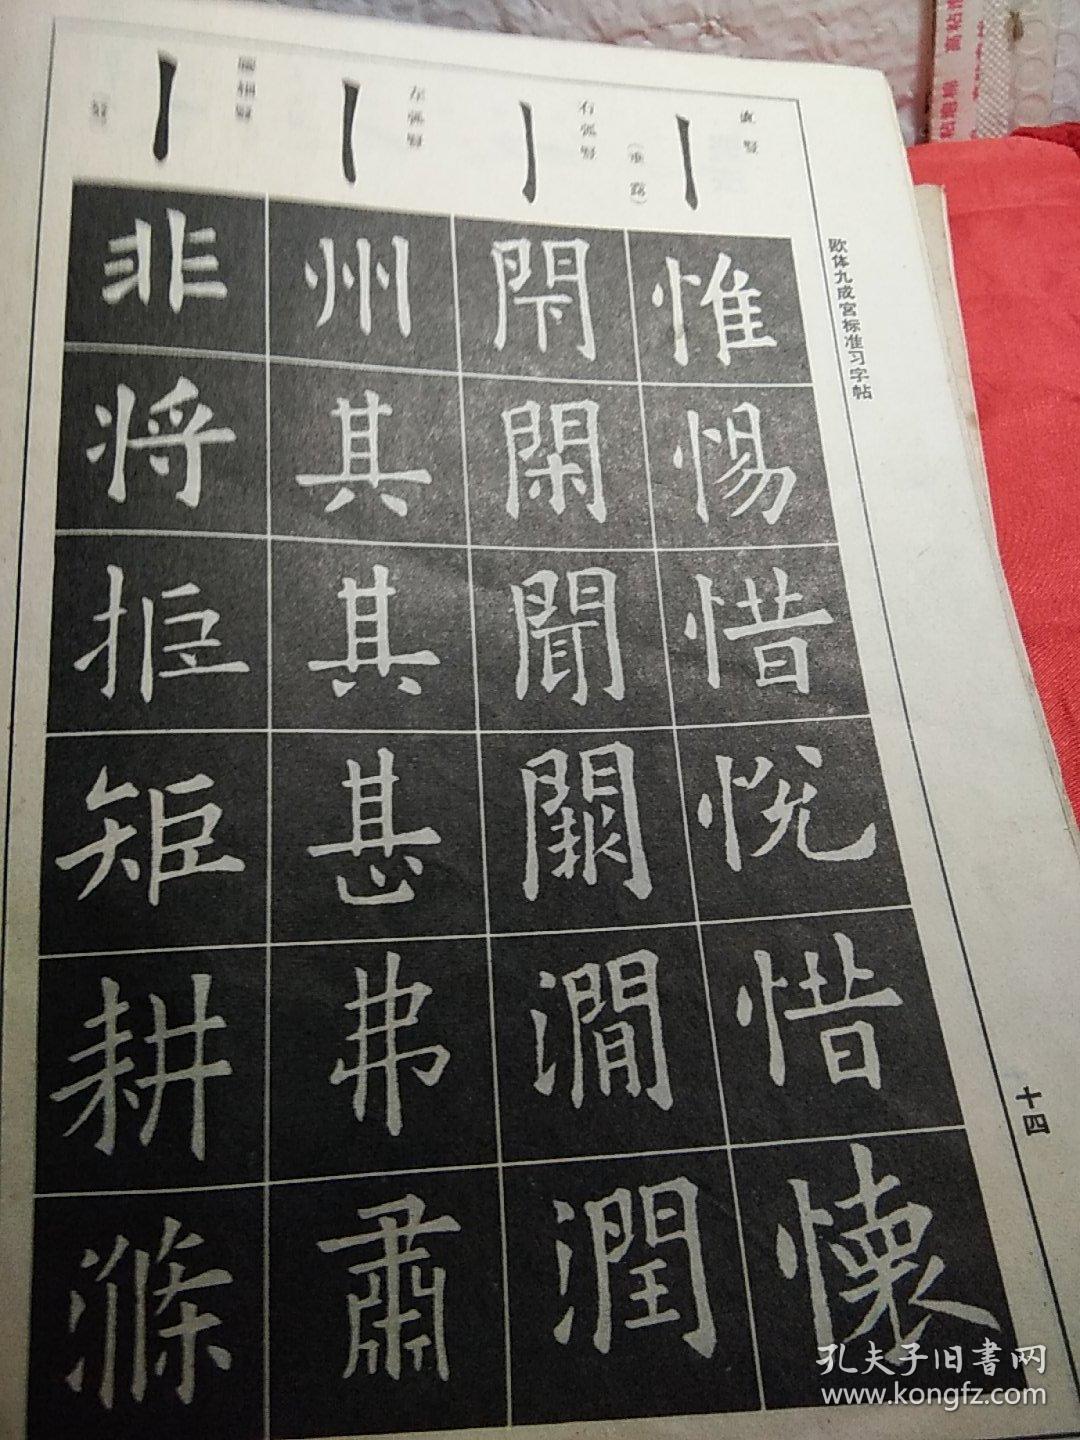 欧体九成宫标准习字帖
十四
直竪
(垂露)
惟
惕
惜
悦
惜
懷
右弧竪
閇
閑
聞
闕
澗
潤
左弧竪
州
其
其
甚
弗
肅
非
将
拒
矩
耕
滌
高粘
粘泡棉
孔夫子旧書网
www.kongfz.com